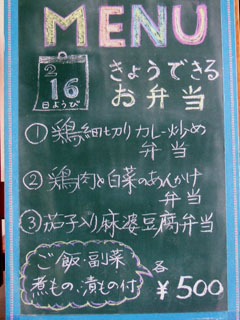 MENU
2
16
日ようび
きょうできる
お弁当
①鶏細切りカレー炒め
弁当
②鶏肉と白菜のあんかけ
弁当
③茄子入り麻婆豆腐弁当
ご飯・副菜
煮もの、漬もの付
各
¥500